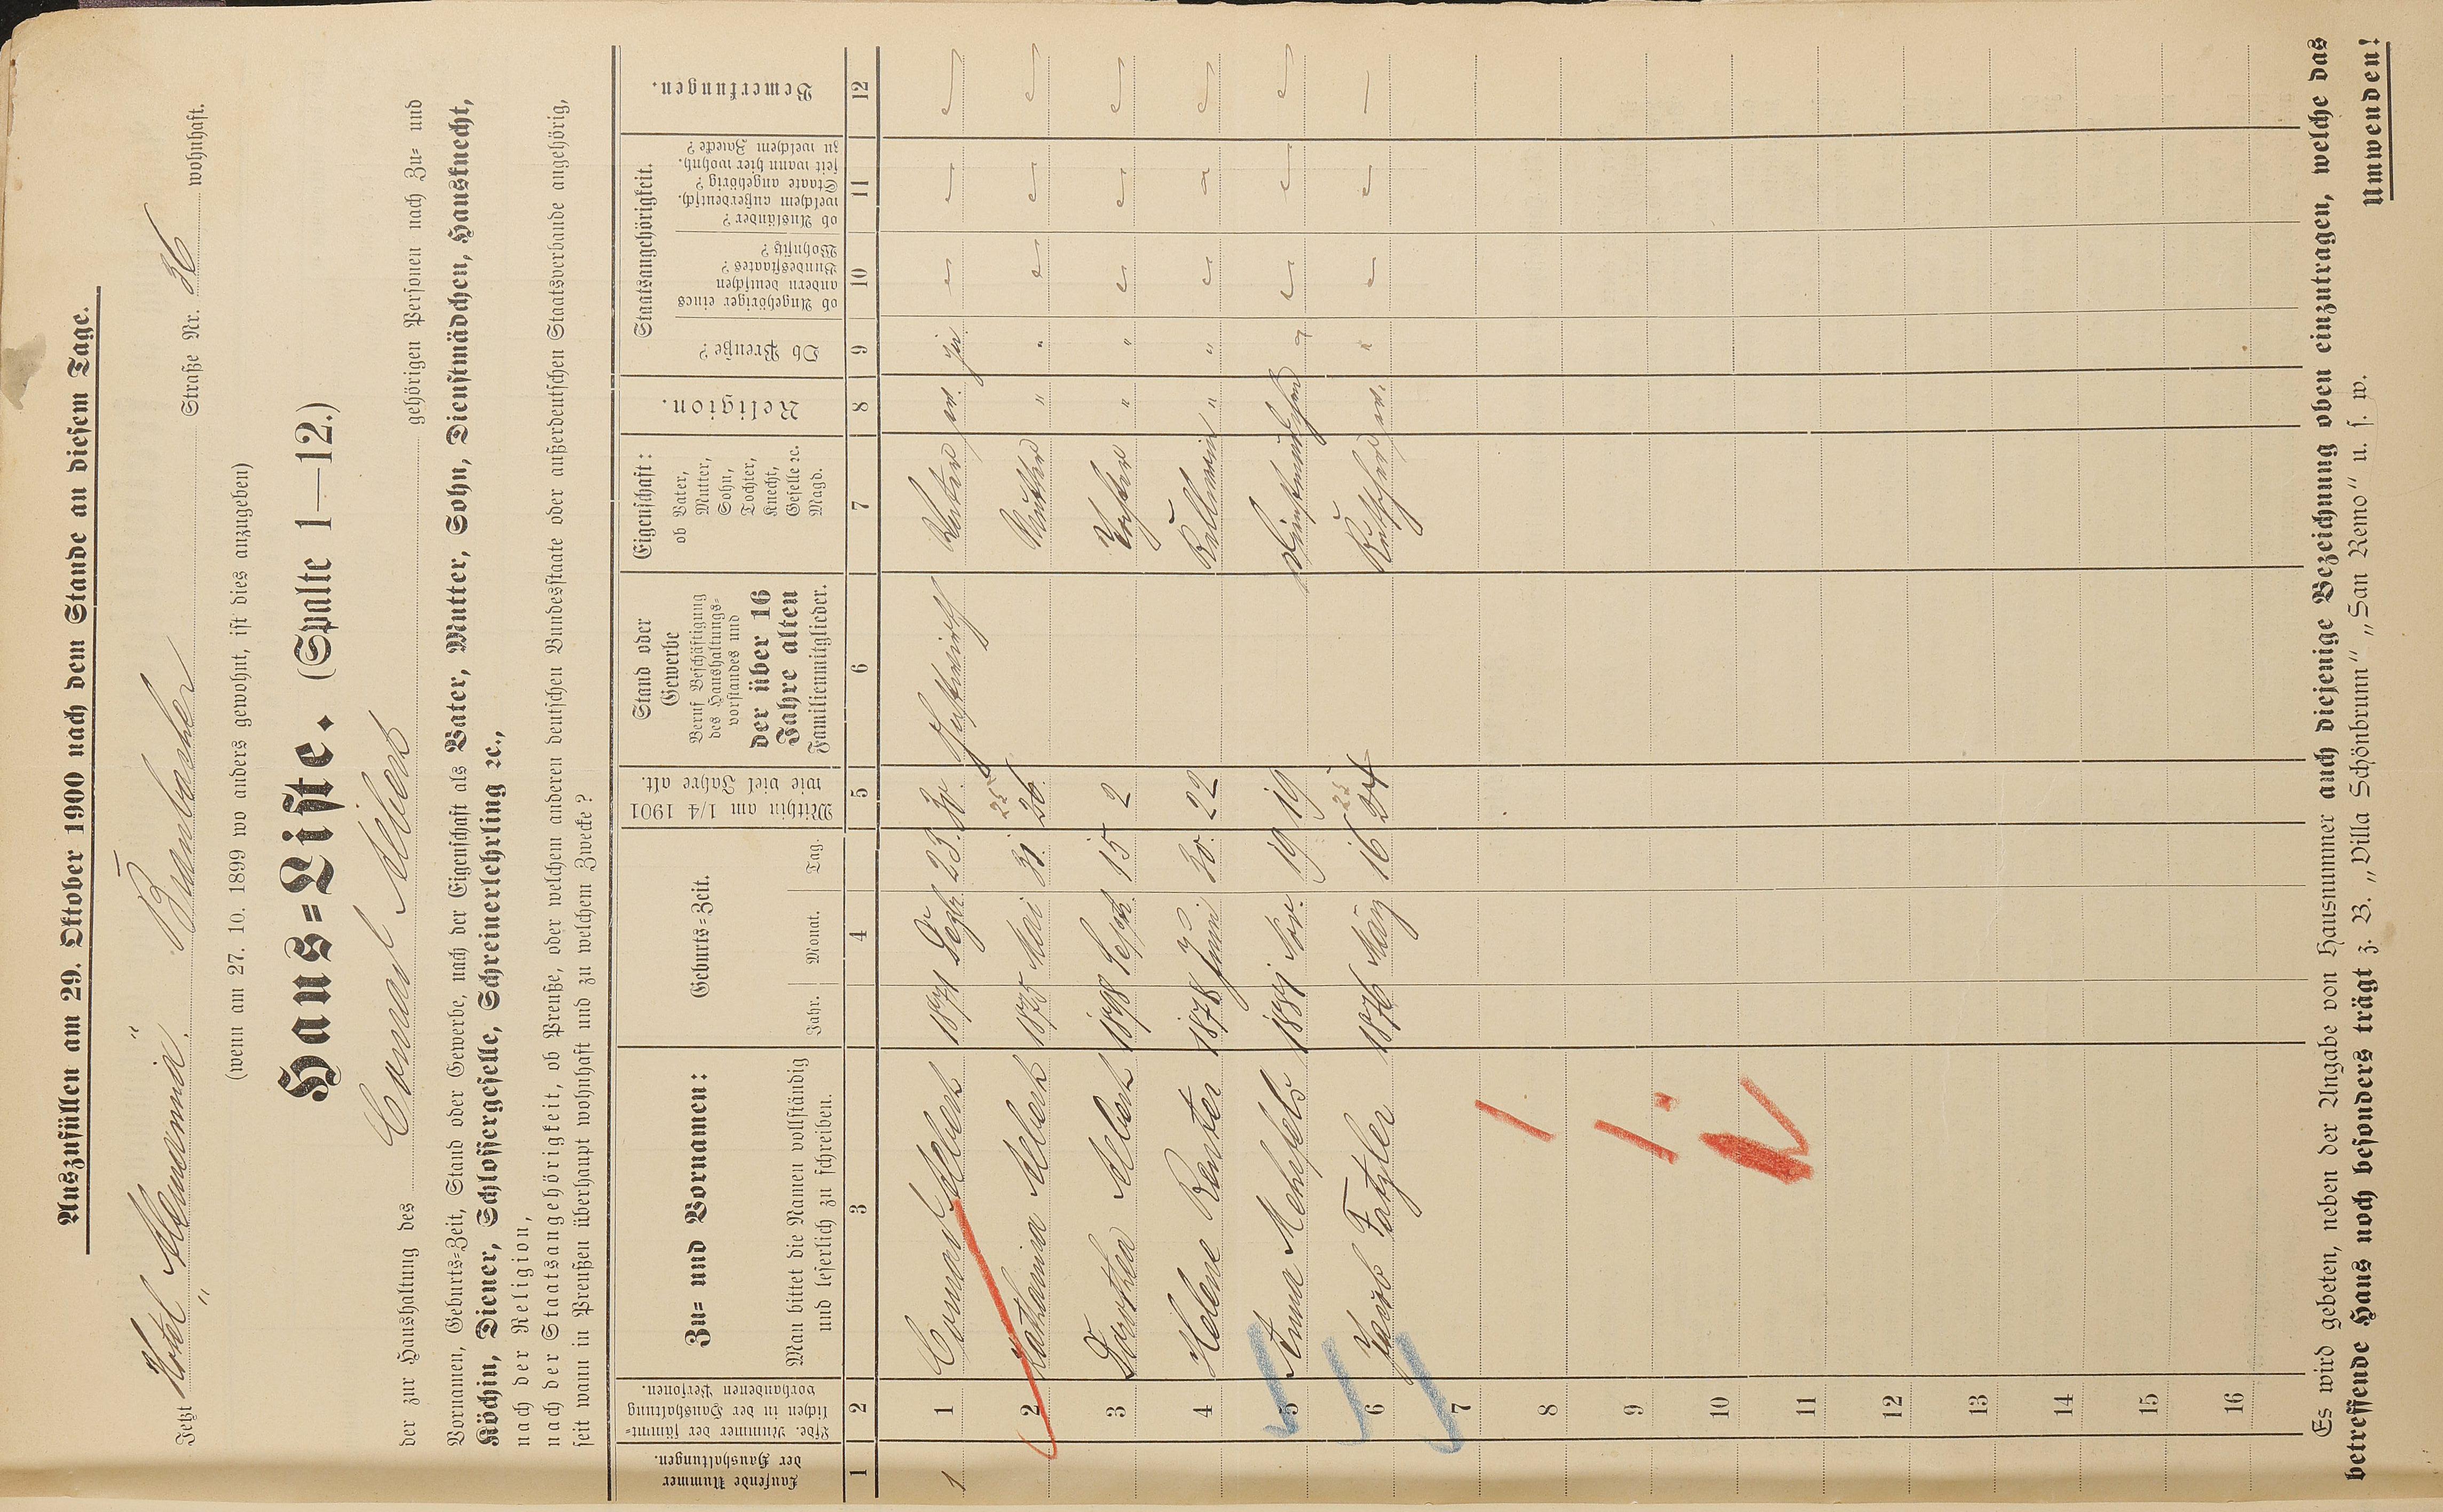 Auszufüllen am 29. Oktober 1900 nach dem Stande an diesem Tage.
Jetzt Hotel „Alemannia" Brunbacher Straße Nr. 36 wohnhaft.
(wenn am 27. 10. 1899 wo anders gewohnt, ist dies anzugeben)
Haus=Liste. (Spalte 1—12.)
der zur Haushaltung des Conrad Albert gehörigen Personen nach Zu= und
Vornamen, Geburts=Zeit, Stand oder Gewerbe, nach der Eigenschaft als Vater, Mutter, Sohn, Dienstmädchen, Hausknecht,
Köchin, Diener, Schlossergeselle, Schreinerlehrling ꝛc.,
nach der Religion,
nach der Staatsangehörigkeit, ob Preuße, oder welchem anderen deutschen Bundesstaate oder außerdeutschen Staatsverbande angehörig,
seit wann in Preußen überhaupt wohnhaft und zu welchem Zwecke?
Laufende Nummer der Haushaltungen.
Lfde. Nummer der sämmt=lichen in der Haushaltung vorhandenen Personen.
Zu= und Vornamen:
Man bittet die Namen vollständig und leserlich zu schreiben.
Geburts=Zeit.
Jahr. Monat. Tag.
Mithin am 1/4 1901 wie viel Jahre alt.
Stand oder Gewerbe
Beruf Beschäftigung des Haushaltungs=vorstandes und
der über 16 Jahre alten Familienmitglieder.
Eigenschaft:
ob Vater, Mutter, Sohn, Tochter, Knecht, Geselle ꝛc. Magd.
Religion.
Staatsangehörigkeit.
Ob Preuße?
ob Angehöriger eines andern deutschen Bundesstaates? Wohnsitz?
ob Ausländer? welchem außerdeutsch. Staate angehörig? seit wann hier wohnh. zu welchem Zwecke?
Bemerkungen.
1 2 3 4 5 6 7 8 9 10 11 12
1 1 Conrad Albert 1871 Dezbr. 23. Gastwirth Vater ev. ja
2 Katharina Albert 1875 Mai 31. 25 26. Mutter " "
3 Dorothea Albert 1898 Septb. 15 2 Tochter " "
4 Helene Reuter 1878 Juni 30. 22 Kellnerin " "
5 Anna Mehnfels 1881 Nov. 19 19 Dienstmädchen "
6 Jacob Fatzler 1876 März 16 25 24 ev. "
7
8
9
10
11
12
13
14
15
16
Es wird gebeten, neben der Angabe von Hausnummer auch diejenige Bezeichnung oben einzutragen, welche das
betreffende Haus noch besonders trägt z. B. „Villa Schönbrunn" „San Remo" u. s. w.
Umwenden!